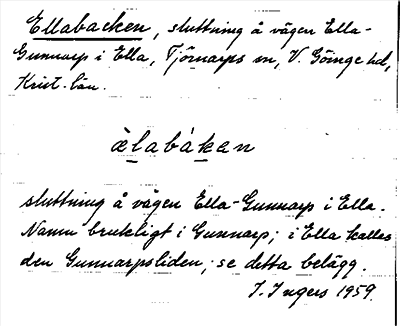 Ellabacken, sluttning å vägen Ella-
Gunnarp i Ella, Tjörnarps sn, V. Göinge hd,
Krist. län.
àlabákan
sluttning å vägen Ella-Gunnarp i Ella.
Namn brukligt i Gunnarp; i Ella kallas
den Gunnarpsliden; se detta belägg.
I. Ingers 1959.